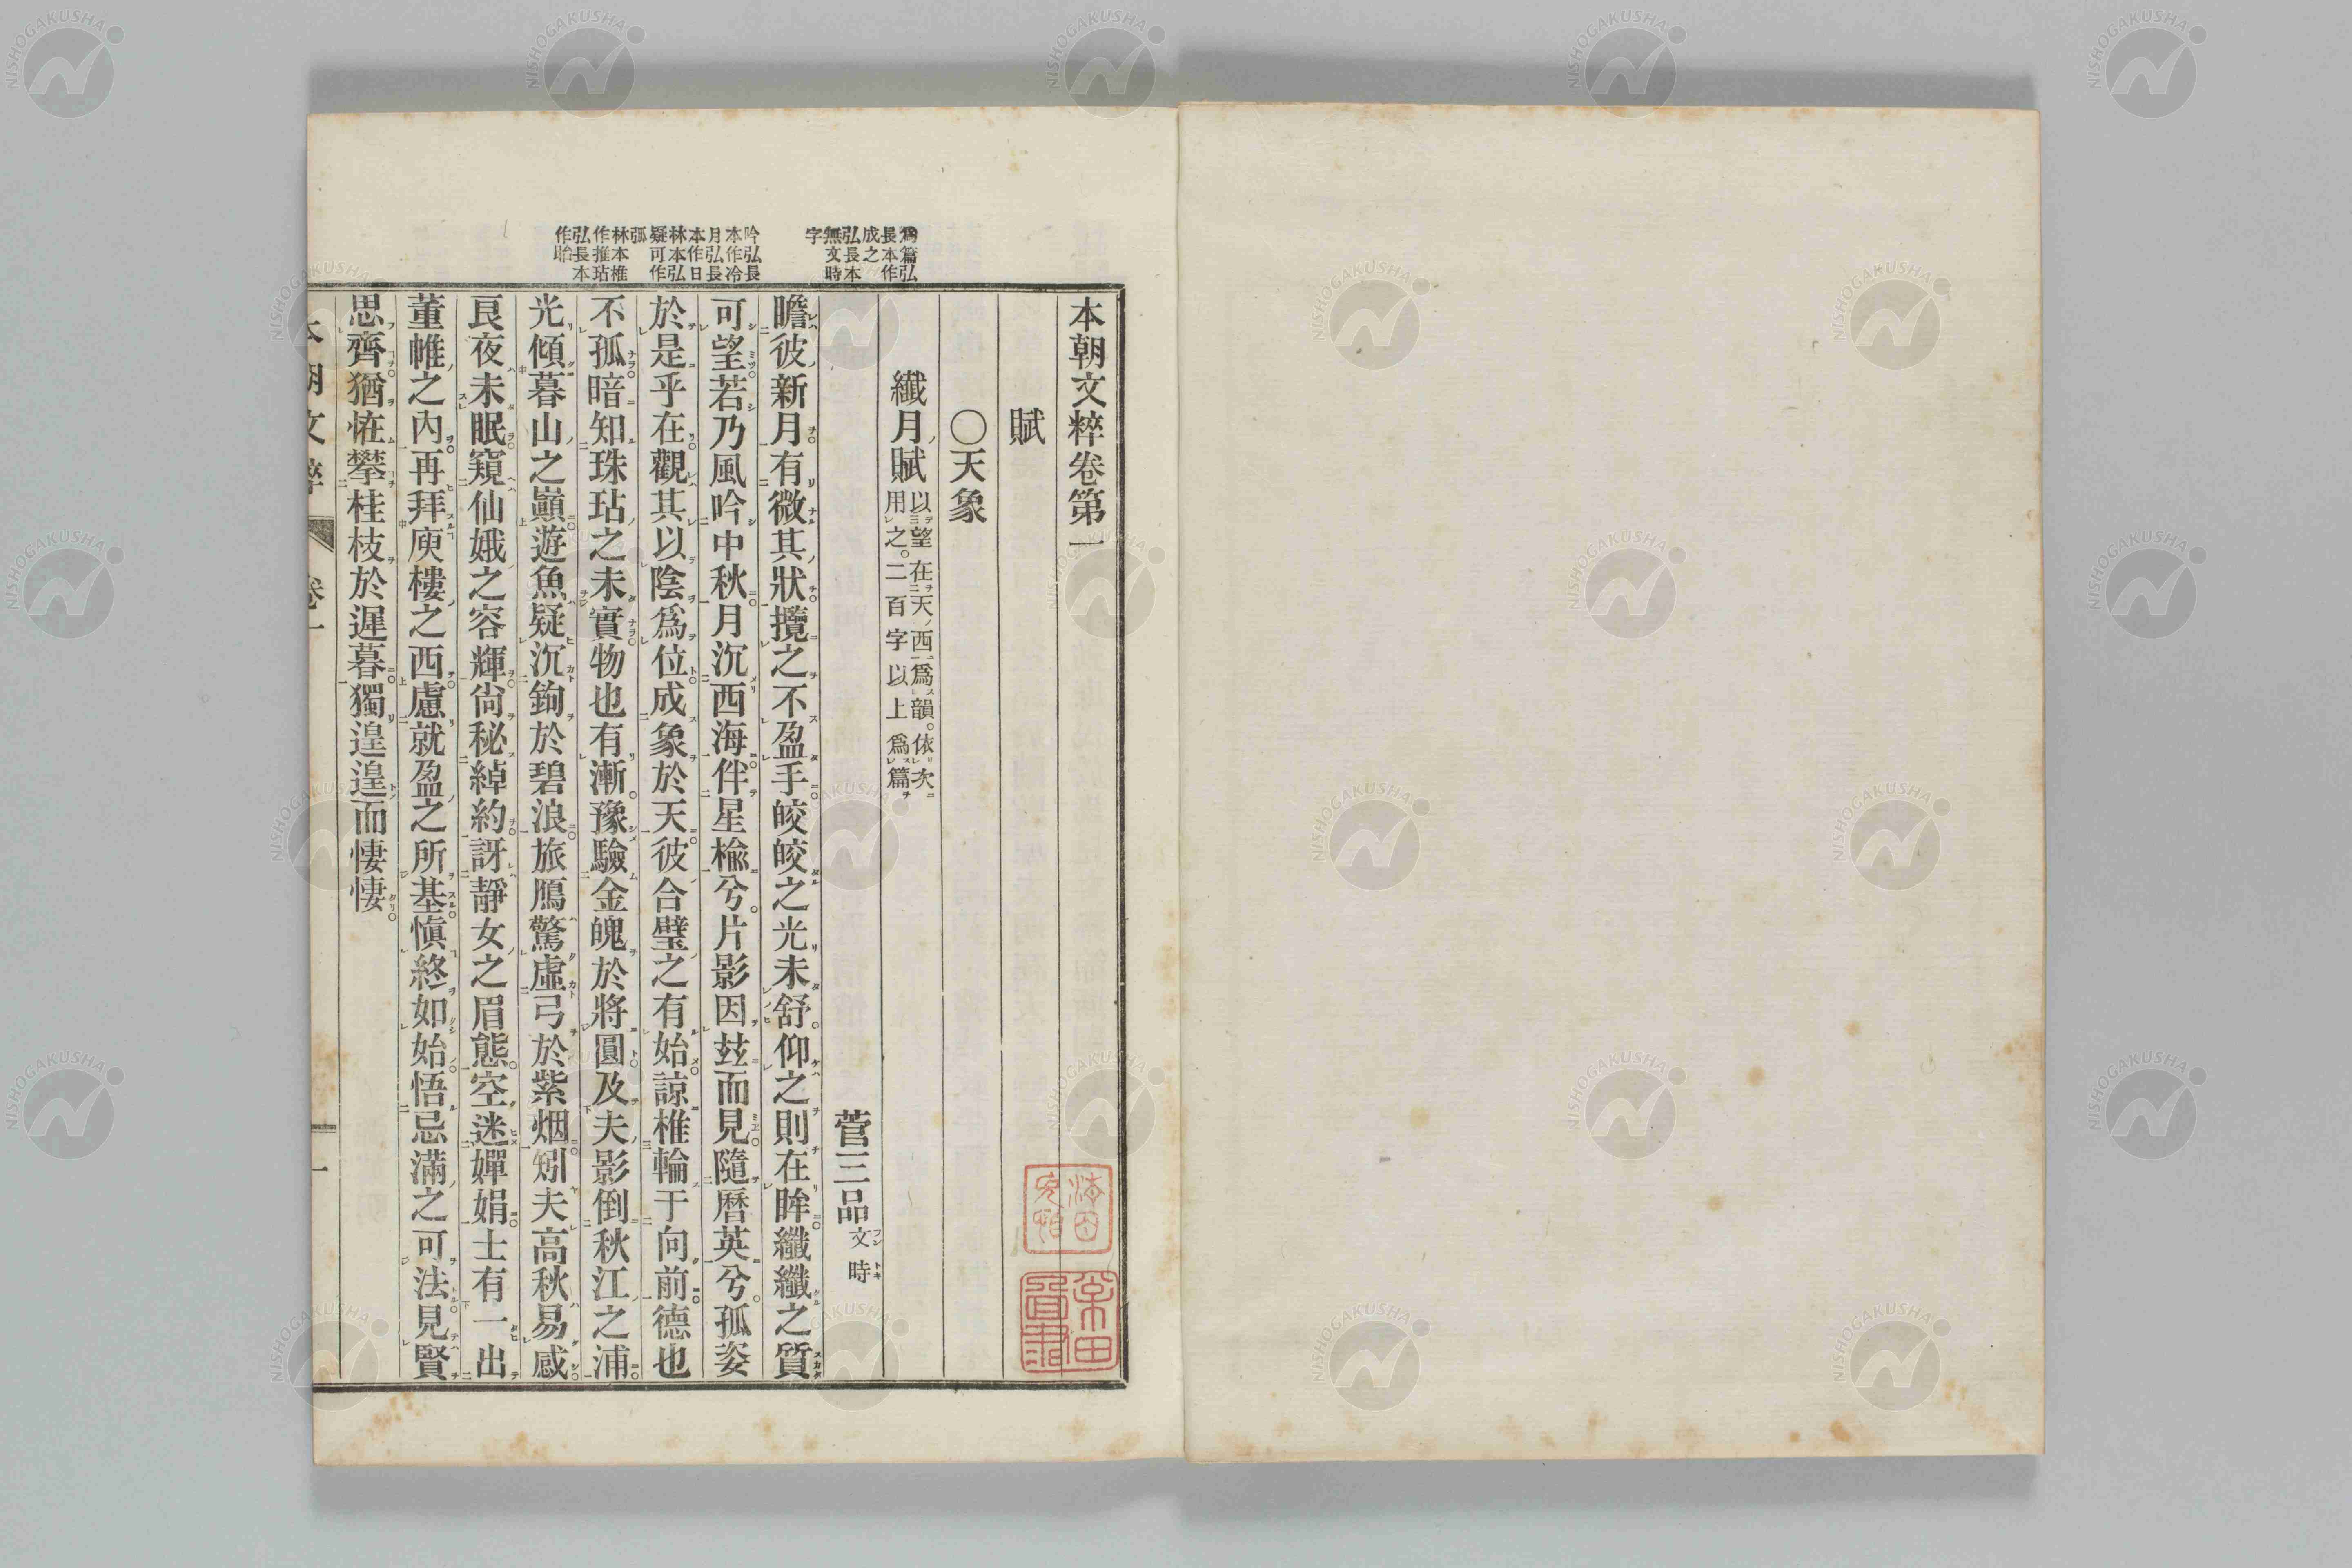 爲篇弘
長本作
成之
弘長本
無文時
字
吟弘長
本作冷
月弘長
本作日
林本弘
疑可作
弧
林本椎
作推玷
弘長本
作眙
本朝文粹卷第一
賦
〇天象
纖月賦 以望在天西爲韻。依次用之。二百字以上爲篇
菅三品文時
瞻彼新月有微其狀攬之不盈手皎皎之光未舒仰之則在眸纖纖之質
可望若乃風吟中秋月沉西海伴星楡兮片影因玆而見隨曆英兮孤姿
於是乎在觀其以陰爲位成象於天彼合璧之有始諒椎輪于向前德也
不孤暗知珠玷之未實物也有漸豫驗金魄於將圓及夫影倒秋江之浦
光傾暮山之巓遊魚疑沉鉤於碧浪旅鴈驚虛弓於紫烟矧夫高秋易感
良夜未眠窺仙娥之容輝尙秘綽約訝靜女之眉態空迷嬋娟士有一出
董帷之內再拜庾樓之西慮就盈之所基愼終如始悟忌滿之可法見賢
思齊猶恠攀桂枝於遲暮獨遑遑而悽悽
本朝文粹 卷一 一
NISHOGAKUSHA